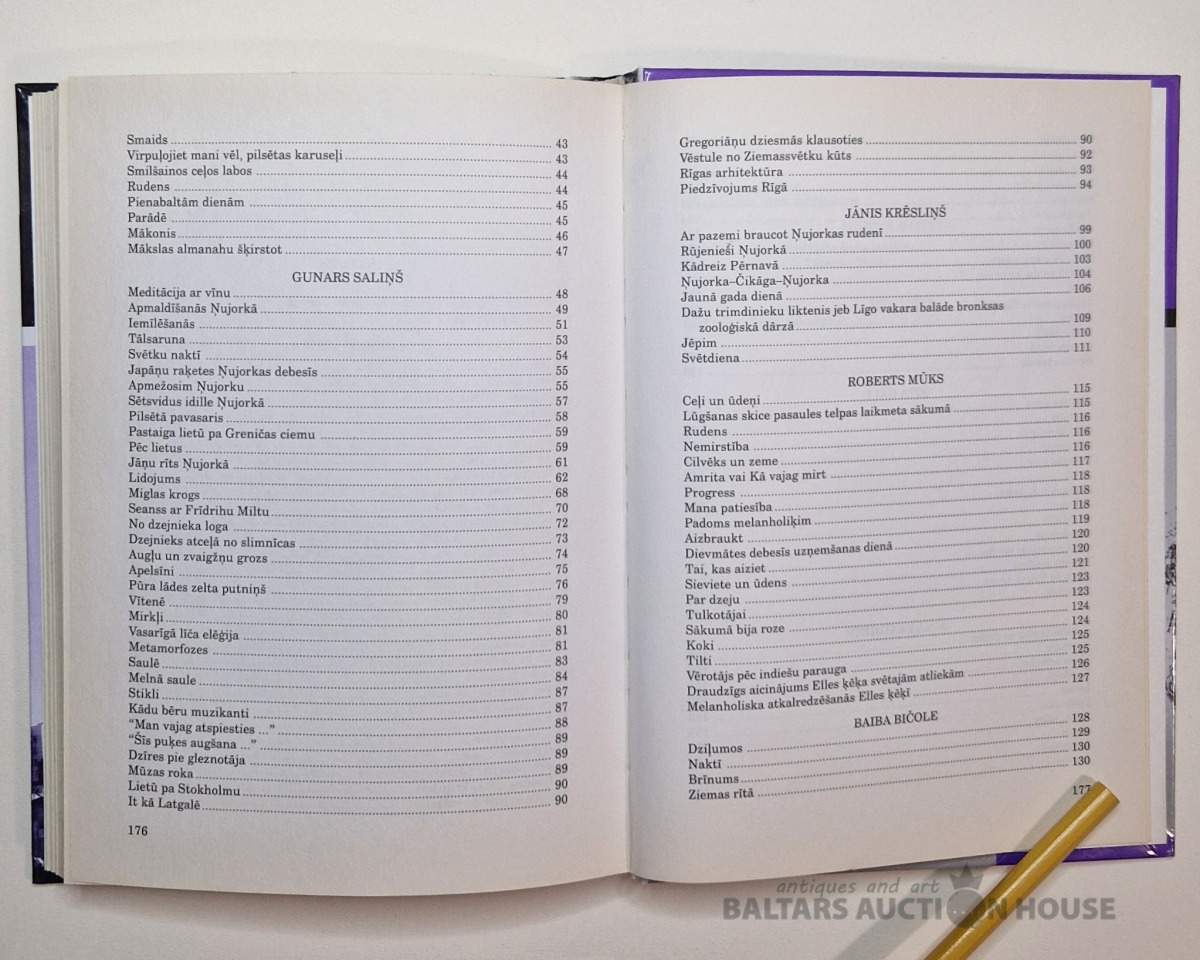 Smaids 43
Virpuļojiet mani vēl, pilsētas karuseļi 43
Smilšainos ceļos labos 44
Rudens 44
Pienabaltām dienām 45
Parādē 45
Mākonis 46
Mākslas almanahu šķirstot 47
GUNARS SALIŅŠ
Meditācija ar vīnu 48
Apmaldīšanās Ņujorkā 49
Iemīlēšanās 51
Tālsaruna 53
Svētku naktī 54
Japāņu raķetes Ņujorkas debesīs 55
Apmežosim Ņujorku 55
Sētsvidus idille Ņujorkā 57
Pilsētā pavasaris 58
Pastaiga lietū pa Greničas ciemu 59
Pēc lietus 59
Jāņu rīts Ņujorkā 61
Lidojums 62
Miglas krogs 68
Seanss ar Frīdrihu Miltu 70
No dzejnieka loga 72
Dzejnieks atceļā no slimnīcas 73
Augļu un zvaigžņu grozs 74
Apelsīni 75
Pūra lādes zelta putniņš 76
Vītenē 79
Mirkļi 80
Vasarīgā līča elēģija 81
Metamorfozes 81
Saulē 83
Melnā saule 84
Stikli 87
Kādu bēru muzikanti 87
“Man vajag atspiesties ...” 88
“Šīs puķes augšana ...” 89
Dzīres pie gleznotāja 89
Mūzas roka 89
Lietū pa Stokholmu 90
It kā Latgalē 90
176
Gregoriāņu dziesmās klausoties 90
Vēstule no Ziemassvētku kūts 92
Rīgas arhitektūra 93
Piedzīvojums Rīgā 94
JĀNIS KRĒSLIŅŠ
Ar pazemi braucot Ņujorkas rudenī 99
Rūjenieši Ņujorkā 100
Kādreiz Pērnavā 103
Ņujorka–Čikāga–Ņujorka 104
Jaunā gada dienā 106
Dažu trimdinieku liktenis jeb Līgo vakara balāde bronksas
zooloģiskā dārzā 109
Jēpim 110
Svētdiena 111
ROBERTS MŪKS
Ceļi un ūdeņi 115
Lūgšanas skice pasaules telpas laikmeta sākumā 115
Rudens 116
Nemirstība 116
Cilvēks un zeme 116
Amrita vai Kā vajag mirt 117
Progress 118
Mana patiesība 118
Padoms melanholiķim 118
Aizbraukt 119
Dievmātes debesīs uzņemšanas dienā 120
Tai, kas aiziet 120
Sieviete un ūdens 121
Par dzeju 123
Tulkotājai 123
Sākumā bija roze 124
Koki 124
Tilti 125
Vērotājs pēc indiešu parauga 125
Draudzīgs aicinājums Elles ķēķa svētajām atliekām 126
Melanholiska atkalredzēšanās Elles ķēķī 127
BAIBA BIČOLE
Dziļumos 128
Naktī 129
Brīnums 130
Ziemas rītā 130
177
antiques and art
BALTARS AUCTION HOUSE